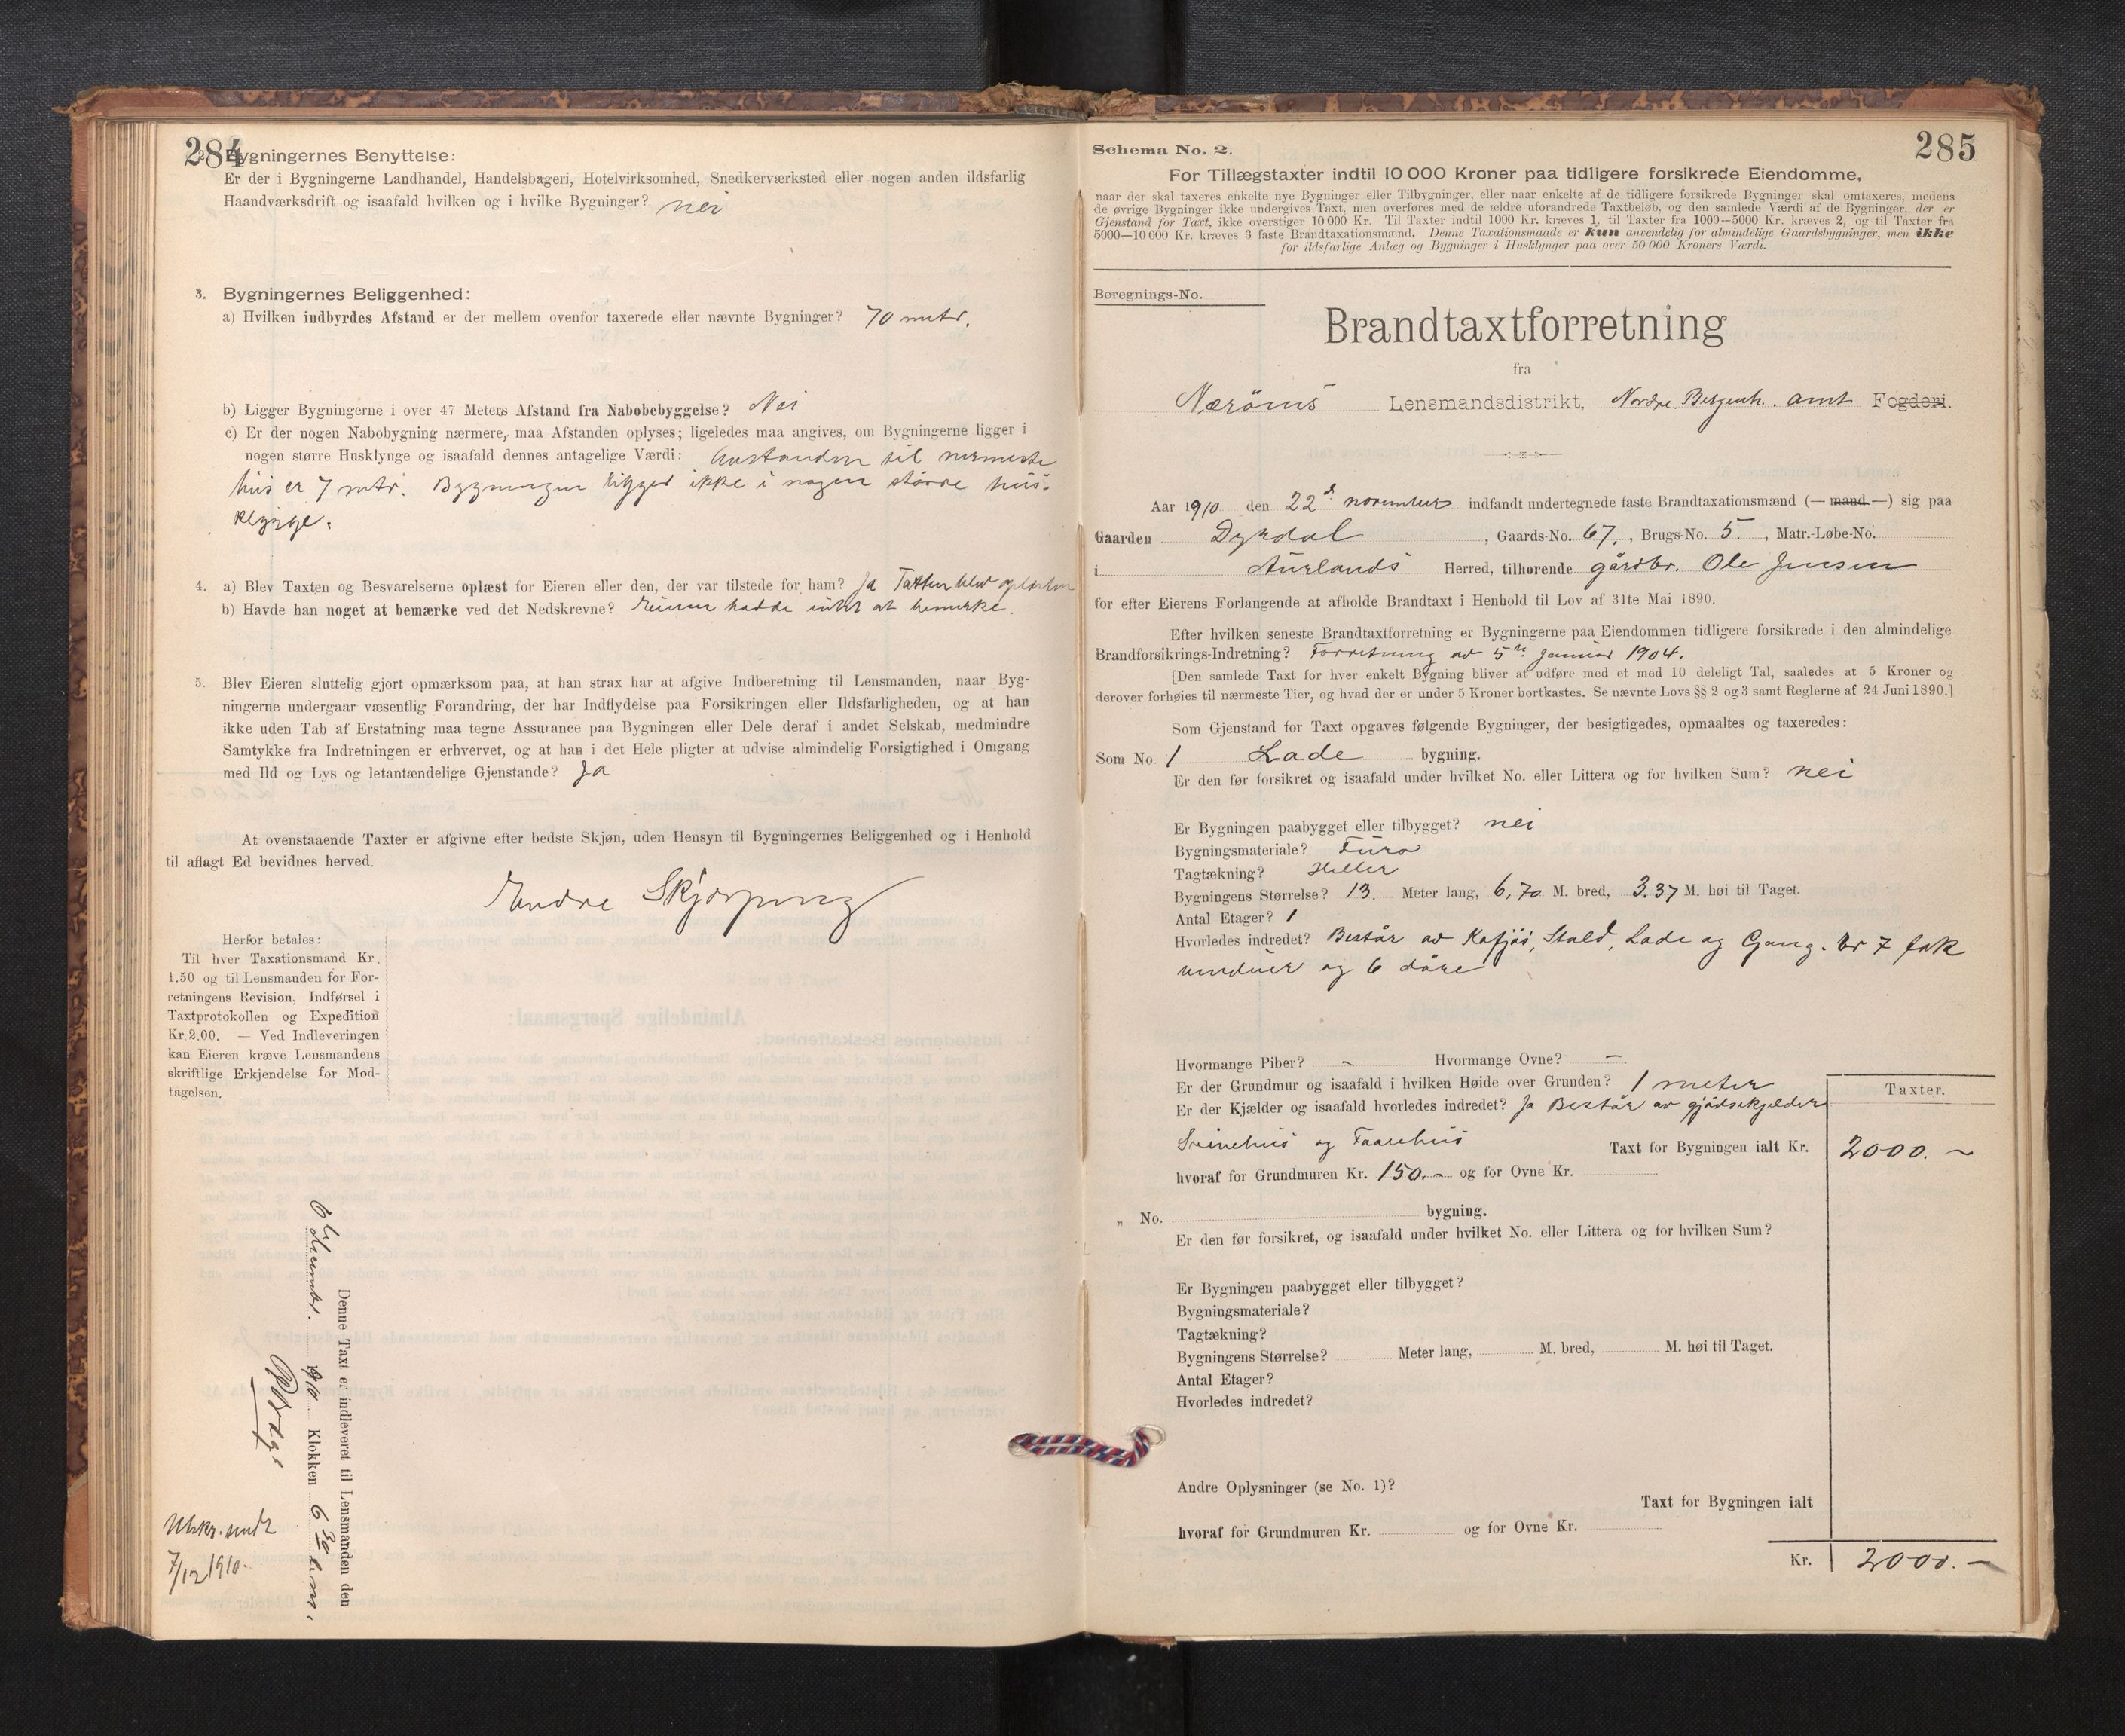 284
2. Bygningernes Benyttelse:
Er der i Bygningerne Landhandel, Handelsbageri, Hotelvirksomhed, Snedkerværksted eller nogen anden ildsfarlig
Haandværksdrift og isaafald hvilken og i hvilke Bygninger? nei
3. Bygningernes Beliggenhed:
a) Hvilken indbyrdes Afstand er der mellem ovenfor taxerede eller nævnte Bygninger? 70 mtr.
b) Ligger Bygningerne i over 47 Meters Afstand fra Nabobebyggelse? Nei
c) Er der nogen Nabobygning nærmere, maa Afstanden oplyses; ligeledes maa angives, om Bygningerne ligger i
nogen større Husklynge og isaafald dennes antagelige Værdi: Avstanden til nermeste
hus er 7 mtr. Bygningen ligger ikke i nogen større hus-
klynge.
4. a) Blev Taxten og Besvarelserne oplæst for Eieren eller den, der var tilstede for ham? Ja Taxten blev oplæsten
b) Havde han noget at bemærke ved det Nedskrevne? Eieren hadde intet at bemerke.
5. Blev Eieren sluttelig gjort opmærksom paa, at han strax har at afgive Indberetning til Lensmanden, naar Byg-
ningerne undergaar væsentlig Forandring, der har Indflydelse paa Forsikringen eller Ildsfarligheden, og at han
ikke uden Tab af Erstatning maa tegne Assurance paa Bygningen eller Dele deraf i andet Selskab, medmindre
Samtykke fra Indretningen er erhvervet, og at han i det Hele pligter at udvise almindelig Forsigtighed i Omgang
med Ild og Lys og letantændelige Gjenstande? Ja
At ovenstaaende Taxter er afgivne efter bedste Skjøn, uden Hensyn til Bygningernes Beliggenhed og i Henhold
til aflagt Ed bevidnes herved.
Endre Skjerping
Herfor betales:
Til hver Taxationsmand Kr.
1.50 og til Lensmanden for For-
retningens Revision, Indførsel i
Taxtprotokollen og Expedition
Kr. 2.00. — Ved Indleveringen
kan Eieren kræve Lensmandens
skriftlige Erkjendelse for Mod-
tagelsen.
Denne Taxt er indleveret til Lensmanden den
6te December 1910 Klokken 6 30 em.
Utskr. sendt
7/12 1910.
285
Schema No. 2.
For Tillægstaxter indtil 10 000 Kroner paa tidligere forsikrede Eiendomme,
naar der skal taxeres enkelte nye Bygninger eller Tilbygninger, eller naar enkelte af de tidligere forsikrede Bygninger skal omtaxeres, medens
de øvrige Bygninger ikke undergives Taxt, men overføres med de ældre uforandrede Taxtbeløb, og den samlede Værdi af de Bygninger, der er
Gjenstand for Taxt, ikke overstiger 10 000 Kr. Til Taxter indtil 1000 Kr. kræves 1, til Taxter fra 1000—5000 Kr. kræves 2, og til Taxter fra
5000—10 000 Kr. kræves 3 faste Brandtaxationsmænd. Denne Taxationsmaade er kun anvendelig for almindelige Gaardsbygninger, men ikke
for ildsfarlige Anlæg og Bygninger i Husklynger paa over 50 000 Kroners Værdi.
Beregnings-No.
Brandtaxtforretning
fra
Nærøens Lensmandsdistrikt, Nordre Bergenh. amt Fogderi.
Aar 1910 den 22d november indfandt undertegnede faste Brandtaxationsmænd (— mand —) sig paa
Gaarden Dyrdal, Gaards-No. 67, Brugs-No. 5., Matr.-Løbe-No.
i Aurlands Herred, tilhørende gårdbr. Ole Jensen
for efter Eierens Forlangende at afholde Brandtaxt i Henhold til Lov af 31te Mai 1890.
Efter hvilken seneste Brandtaxtforretning er Bygningerne paa Eiendommen tidligere forsikrede i den almindelige
Brandforsikrings-Indretning? Forretning av 5te Januar 1904.
[Den samlede Taxt for hver enkelt Bygning bliver at udføre med et med 10 deleligt Tal, saaledes at 5 Kroner og
derover forhøies til nærmeste Tier, og hvad der er under 5 Kroner bortkastes. Se nævnte Lovs §§ 2 og 3 samt Reglerne af 24 Juni 1890.]
Som Gjenstand for Taxt opgaves følgende Bygninger, der besigtigedes, opmaaltes og taxeredes:
Som No. 1 Lade bygning.
Er den før forsikret og isaafald under hvilket No. eller Littera og for hvilken Sum? nei
Er Bygningen paabygget eller tilbygget? nei
Bygningsmateriale? Furo
Tagtækning? Heller
Bygningens Størrelse? 13. Meter lang, 6,70 M. bred, 3.37 M. høi til Taget.
Antal Etager? 1
Hvorledes indredet? Består av Kofjøs, Stald, Lade og Gang. br 7 fak
vinduer og 6 døre
Hvormange Piber? — Hvormange Ovne? —
Er der Grundmur og isaafald i hvilken Høide over Grunden? 1 meter
Taxter.
Er der Kjælder og isaafald hvorledes indredet? Ja Består av gjødselkjelder
Svinehus og Faarehus Taxt for Bygningen ialt Kr. 2000. —
hvoraf for Grundmuren Kr. 150.— og for Ovne Kr.
„ No. bygning.
Er den før forsikret, og isaafald under hvilket No. eller Littera og for hvilken Sum?
Er Bygningen paabygget eller tilbygget?
Bygningsmateriale?
Tagtækning?
Bygningens Størrelse? Meter lang, M. bred, M. høi til Taget.
Antal Etager?
Hvorledes indredet?
Andre Oplysninger (se No. 1)?
Taxt for Bygningen ialt
hvoraf for Grundmuren Kr. og for Ovne Kr.
Kr. 2000.—